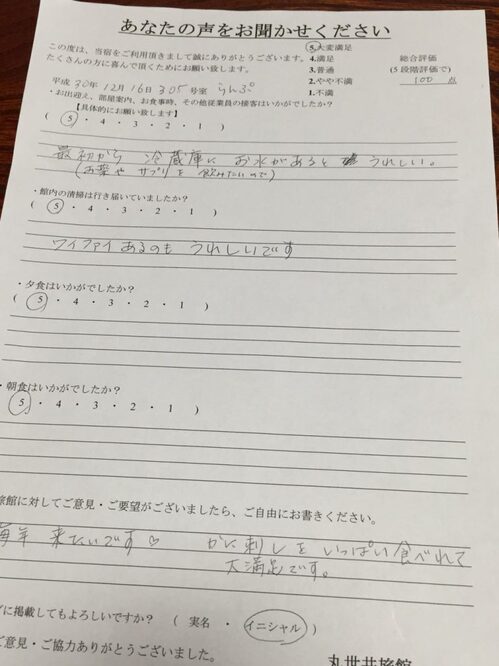 あなたの声をお聞かせください
この度は、当宿をご利用頂きまして誠にありがとうございます。
たくさんの方に喜んで頂くためにお願い致します。
5.大変満足
4.満足
3.普通
2.やや不満
1.不満
総合評価
(5段階評価で)
100 点
平成 30年 12月 16日 305号室 らんぷ
・お出迎え、部屋案内、お食事時、その他従業員の接客はいかがでしたか?
【具体的にお願い致します】
( 5 ・ 4 ・ 3 ・ 2 ・ 1 )
最初から 冷蔵庫に お水があると うれしい。
(お薬や サプリを 飲みたいので)
・館内の清掃は行き届いていましたか?
( 5 ・ 4 ・ 3 ・ 2 ・ 1 )
ワイファイあるのも うれしいです
・夕食はいかがでしたか?
( 5 ・ 4 ・ 3 ・ 2 ・ 1 )
・朝食はいかがでしたか?
( 5 ・ 4 ・ 3 ・ 2 ・ 1 )
旅館に対してご意見・ご要望がございましたら、ご自由にお書きください。
毎年 来たいです♡ かに刺しを いっぱい 食べれて
大満足です。
に掲載してもよろしいですか? ( 実名 ・ イニシャル )
ご意見・ご協力ありがとうございました。
丸世井旅館